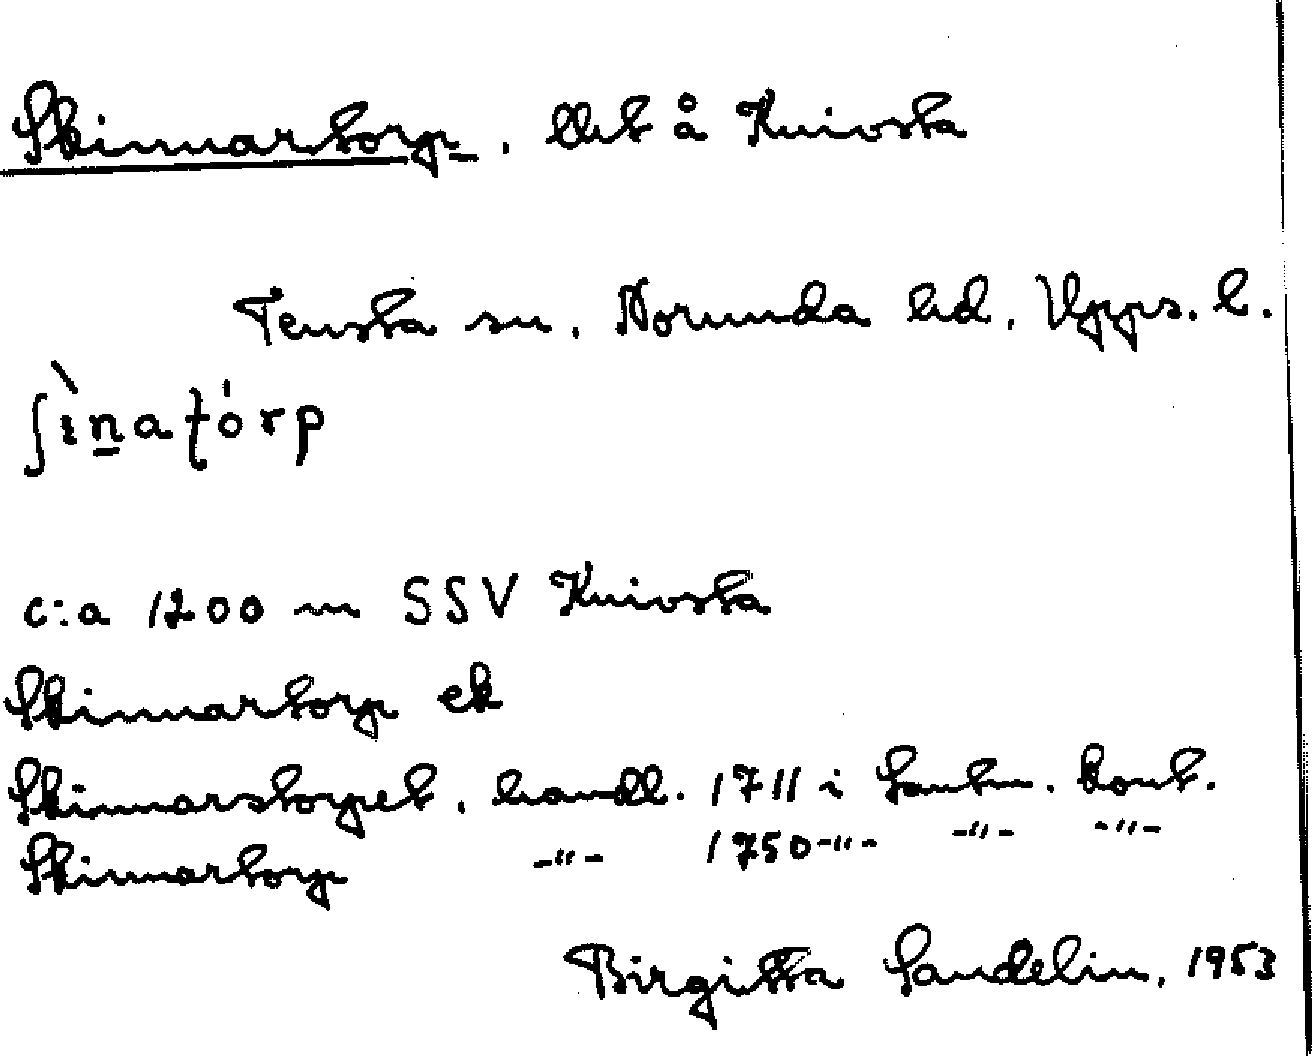 Skinnartorp. Uet å Knivsta
Tensta sn. Norunda hd. Upps. l.
ʃìn̲atórp
c:a 1200 m SSV Knivsta
Skinnartorp ek
Skinnarstorpet. handl. 1711 i Lantm. kont.
Skinnartorp -"- 1750 -"- -"- -"-
Birgitta Sandelin, 1953